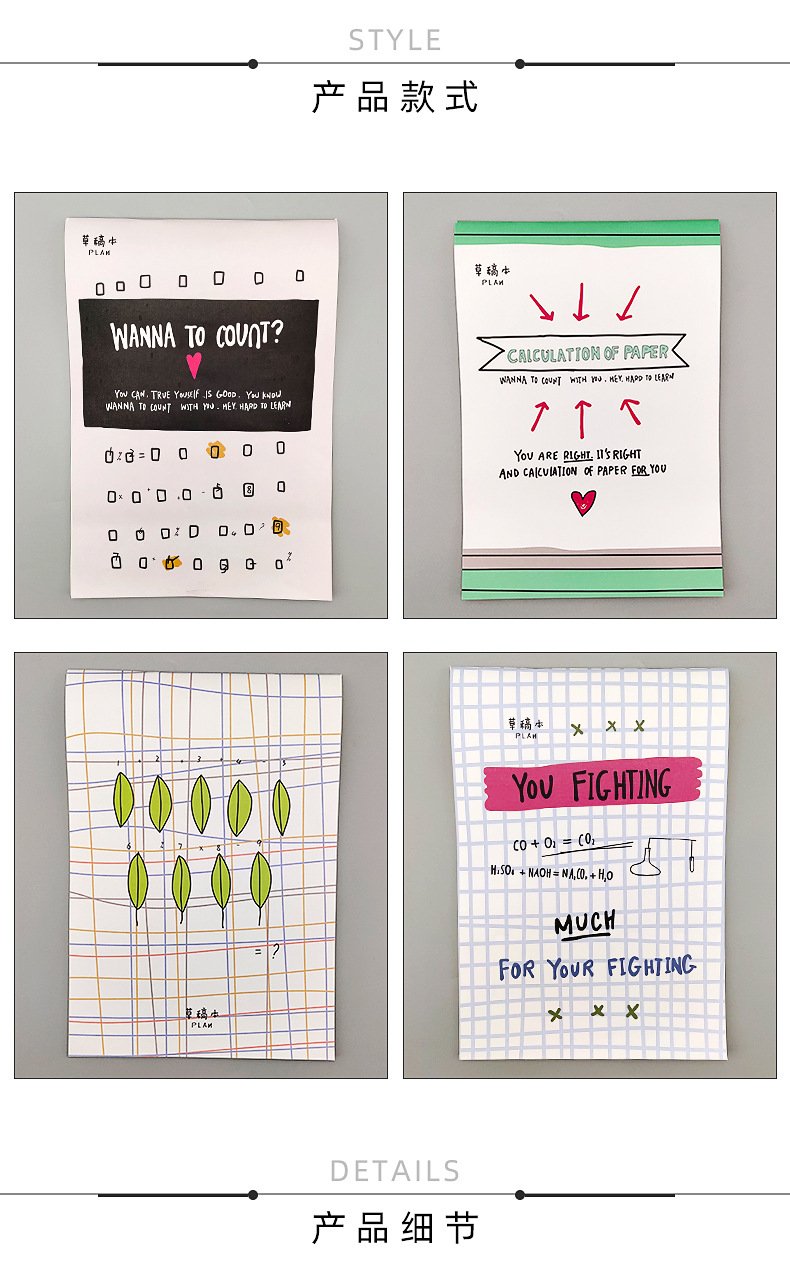 STYLE
产品款式
草稿本
PLAN
WANNA TO COUNT?
YOU CAN. TRUE YOUSELF .IS GOOD. YOU KNOW
WANNA TO COUNT WITH YOU. HEY. HARD TO LEARN
草稿本
PLAN
CALCULATION OF PAPER
WANNA TO COUNT WITH YOU. HEY. HARD TO LEARN
YOU ARE RIGHT. IT'S RIGHT
AND CALCULATION OF PAPER FOR YOU
1 + 2 + 3 + 4 - 5
6 7 x 8 - 9
= ?
草稿本
PLAN
草稿本
PLAN
YOU FIGHTING
CO + O₂ = CO₂
H₂SO₄ + NAOH = NA₂CO₃ + H₂O
MUCH
FOR YOUR FIGHTING
DETAILS
产品细节